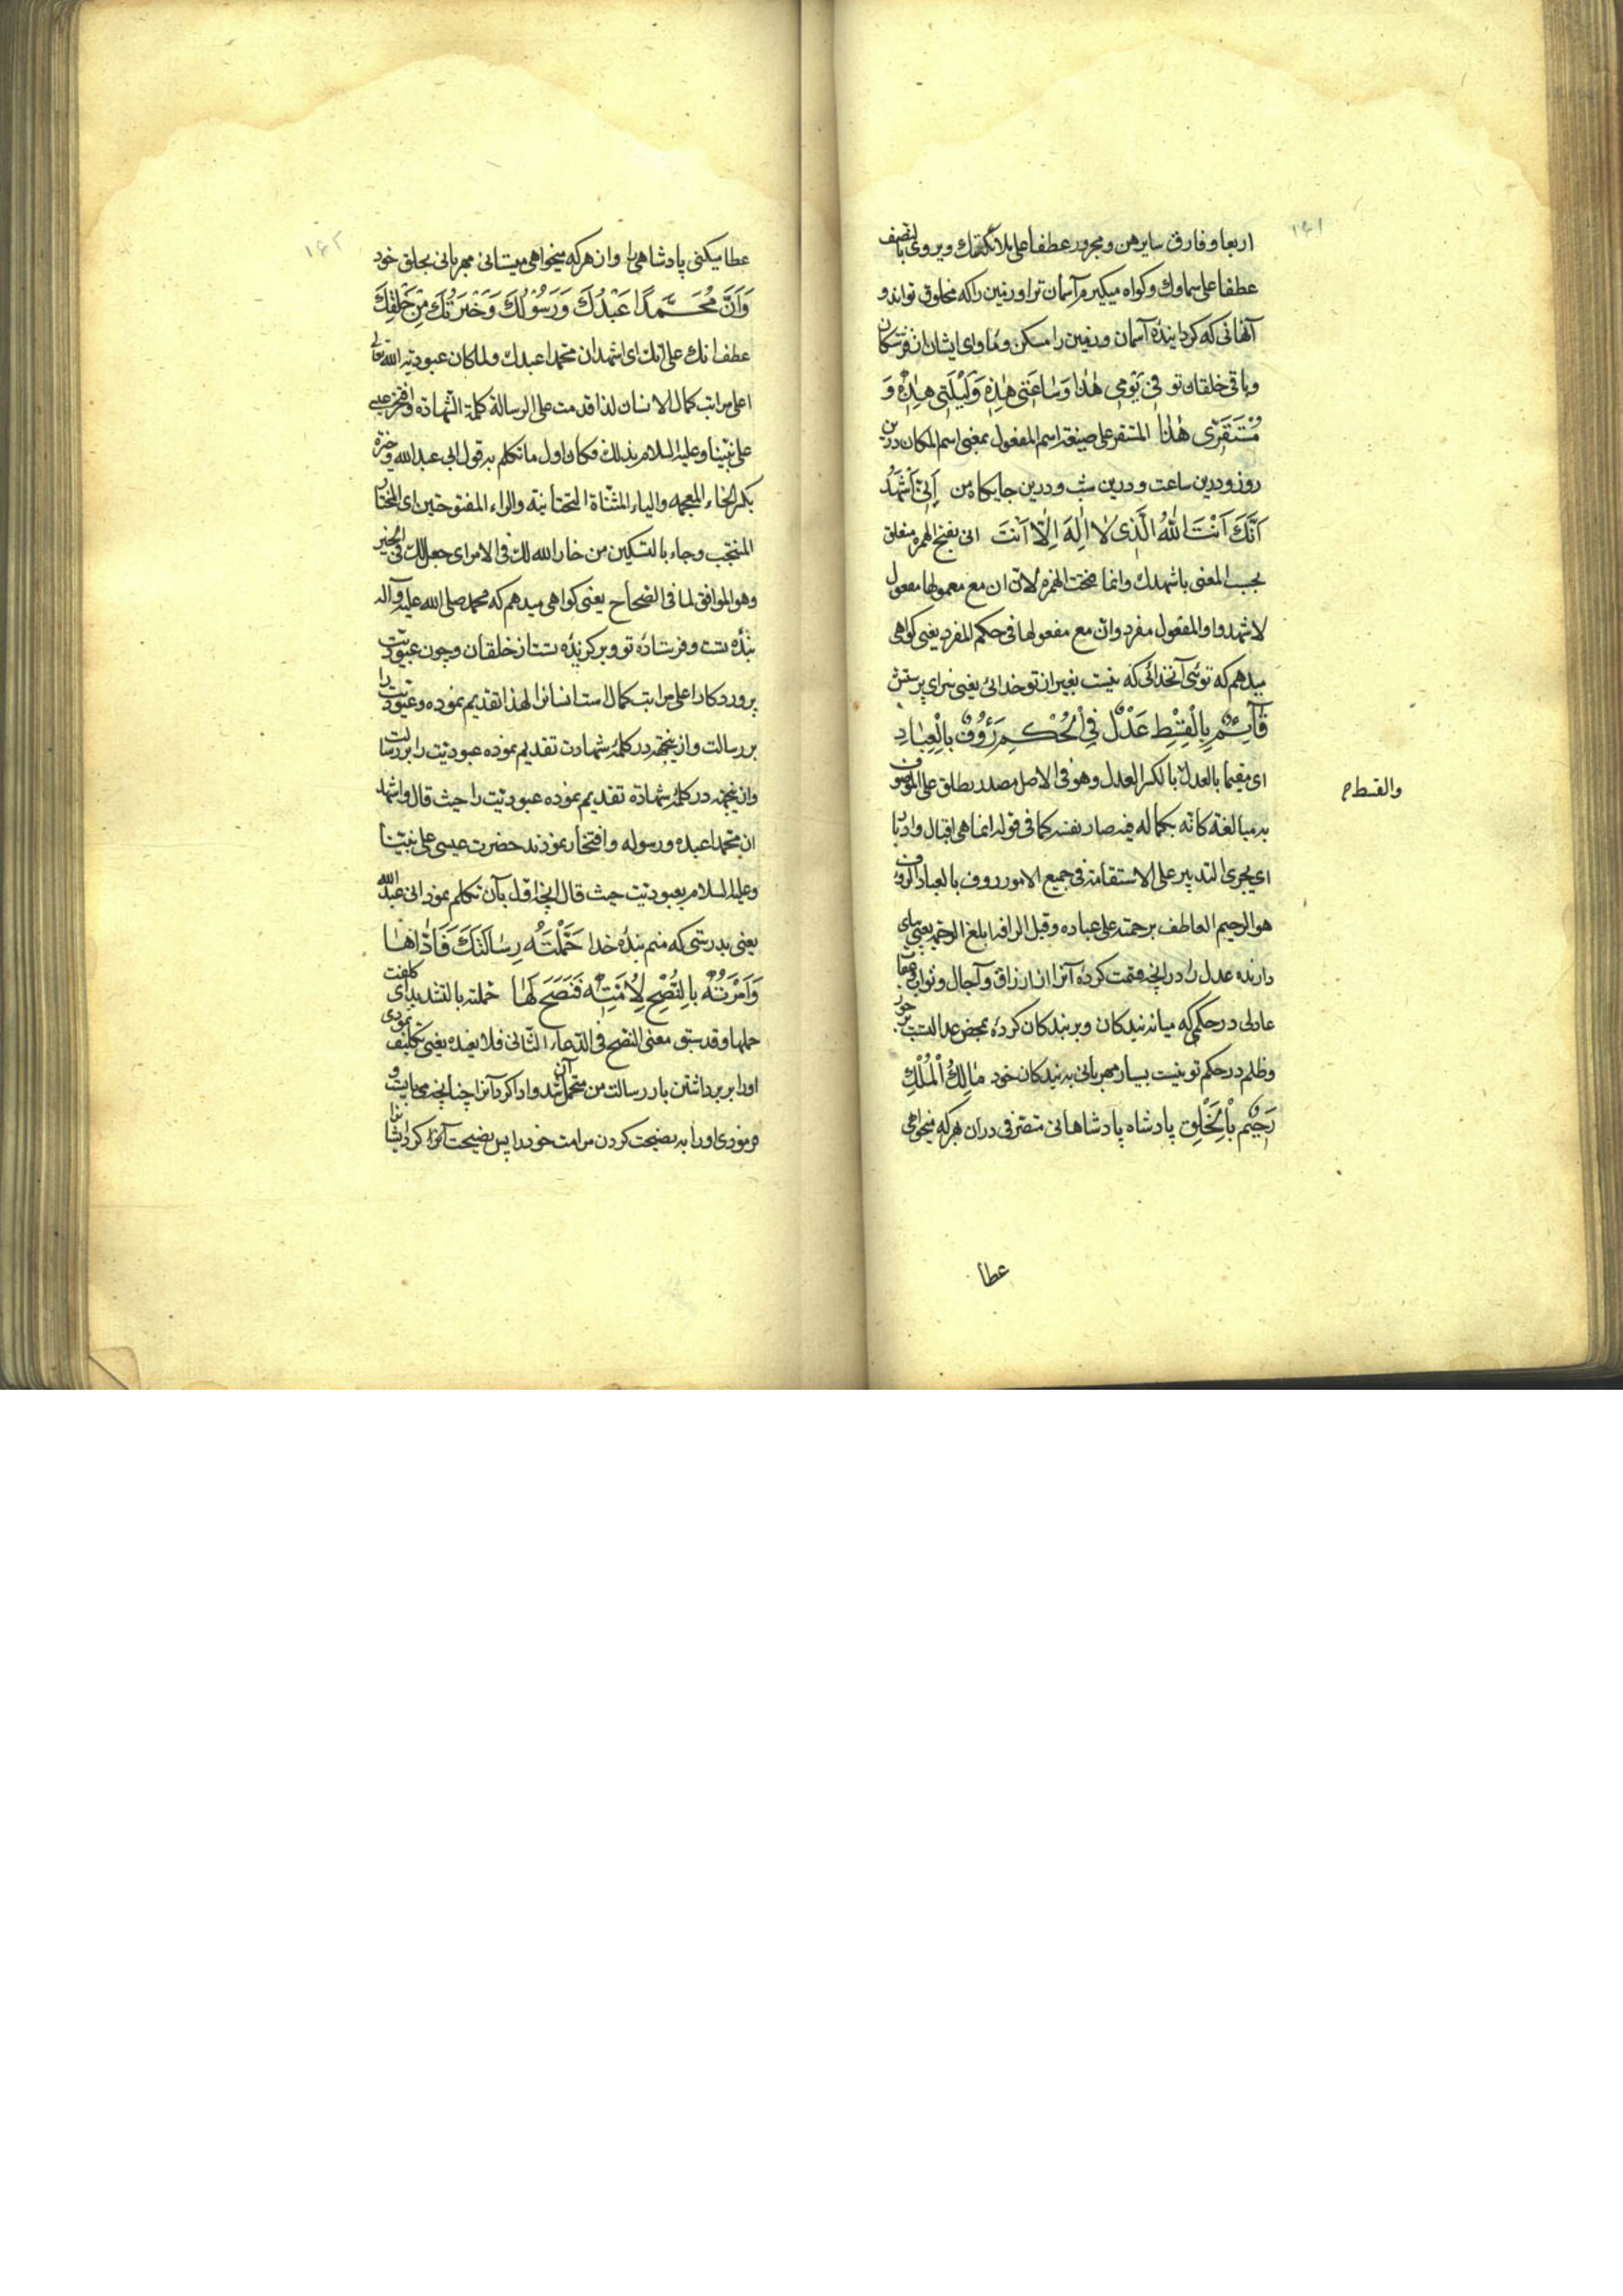 ۱۶۱
اربعا و فارق سایرهن و مجرور عطفا علی ملائکتک و یروی بالنصف
عطفا علی سماوك و کواه میکیرم آسمان ترا و زمین را که مخلوق تواند و
آنهائی که کردانیدهٔ آسمان و زمین را مسکن و ماوای ایشان از فرشتکان
و باقی خلقان تو فِی یَوْمِی هٰذَا وَسَاعَتِی هٰذِهِ وَلَیْلَتِی هٰذِهِ وَ
مُسْتَقَرِّی هٰذَا المستقر علی صیغة اسم المفعول بمعنی اسم المکان درین
روز و درین ساعت و درین شب و درین جایکاه من اِنِّی اَشْهَدُ
اَنَّكَ اَنْتَ اللهُ الَّذِی لَا اِلٰهَ اِلَّا اَنْتَ انی بفتح الهمزه متعلق
بحسب المعنی باشهدك وانما فتحت الهمزه لانّ ان مع معمولها مفعول
لاشهد و المفعول مفرد وانّ مع مفعولها فی حکم المفرد یعنی کواهی
میدهم که توئی آنخدائی که نیست بغیر از تو خدائی یعنی سزای پرستش
قَآئِمٌ بِالْقِسْطِ عَدْلٌ فِی الْحُکْمِ رَؤُفٌ بِالْعِبَادِ
ای مقیما بالعدل بالکسر العدل وهو فی الاصل مصدر یطلق علی الموصوف
والقسط م
به مبالغة کانه بکماله فیه صار نفسه کما فی قوله انما هی اقبال وادبار
ای یجری التدبیر علی الاستقامة فی جمیع الامور رووف بالعباد الروف
هو الرحیم العاطف برحمته علی عباده وقیل الرافه ابلغ الرحمة یعنی بپای
دارنده عدل را در انچه قسمت کردهٔ آنرا از ارزاق و آجال و ثواب و عقاب
عادلی در حکمی که میانه بندکان و بر بندکان کردهٔ محض عدالتست جور
وظلم در حکم تو نیست بسیار مهربانی به بندکان خود مَالِكُ الْمُلْكِ
رَحِیْمٌ بِالْخَلْقِ پادشاه پادشاهانی متصرفی دران هرکه میخواهی
عطا
۱۶۲
عطا میکنی پادشاهی را و از هرکه میخواهی میستانی مهربانی بخلق خود
وَاَنَّ مُحَمَّدًا عَبْدُكَ وَرَسُوْلُكَ وَخِیَرَتُكَ مِنْ خَلْقِكَ
عطف انك علی انّك ای اشهد ان محمدا عبدك ولما کان عبودیة الله تعالی
اعلی مراتب کمال الانسان لذا قدمت علی الرسالة کلمة الشهادة وافتخر عیسی
علی نبینا وعلیه السلام بذلك فکان اول ما تکلم به قول انی عبد الله وخیرة
بکسر الخاء المعجمه والیاء المثناة التحتانیة والراء المفتوحتین ای المختار
المنتجب وجاء بالتسکین من خار الله لك فی الامر ای جعل لك فیه الخیر
وهو الموافق لما فی الصحاح یعنی کواهی میدهم که محمد صلی الله علیه وآله
بندهٔ تست و فرستادهٔ تو و برکزیدهٔ تست از خلقان و چون عبودیت
پروردکار اعلی مراتب کمال است انسانرا لهذا تقدیم نموده عبودیت را
بر رسالت و ازینجهة در کلمهٔ شهادت تقدیم نموده عبودیت را بر رسالت
وازینجهة در کلمهٔ شهادة تقدیم نموده عبودیت را حیث قال واشهد
ان محمدا عبده ورسوله و افتخار نمودند حضرت عیسی علی نبینا
وعلیه السلام بعبودیت حیث قال انچه اول بآن تکلم نمود انی عبد الله
یعنی بدرستی که منم بندهٔ خدا حَمَّلْتَهُ رِسَالَتَكَ فَاَدَّاهَا
وَاَمَرْتَهُ بِالنُّصْحِ لِاُمَّتِهِ فَنَصَحَ لَهَا حملته بالتشدید ای کلفت
حملها وقد سبق معنی النصح فی الدعاء الثانی فلا نعیده یعنی تکلیف نمودی
اورا بر برداشتن بار رسالت من متحمل آن شد و ادا کرد آنرا چنانچه میبایست و
فرمودی اورا به نصیحت کردن مر امت خود را پس نصیحت کرد ایشانرا